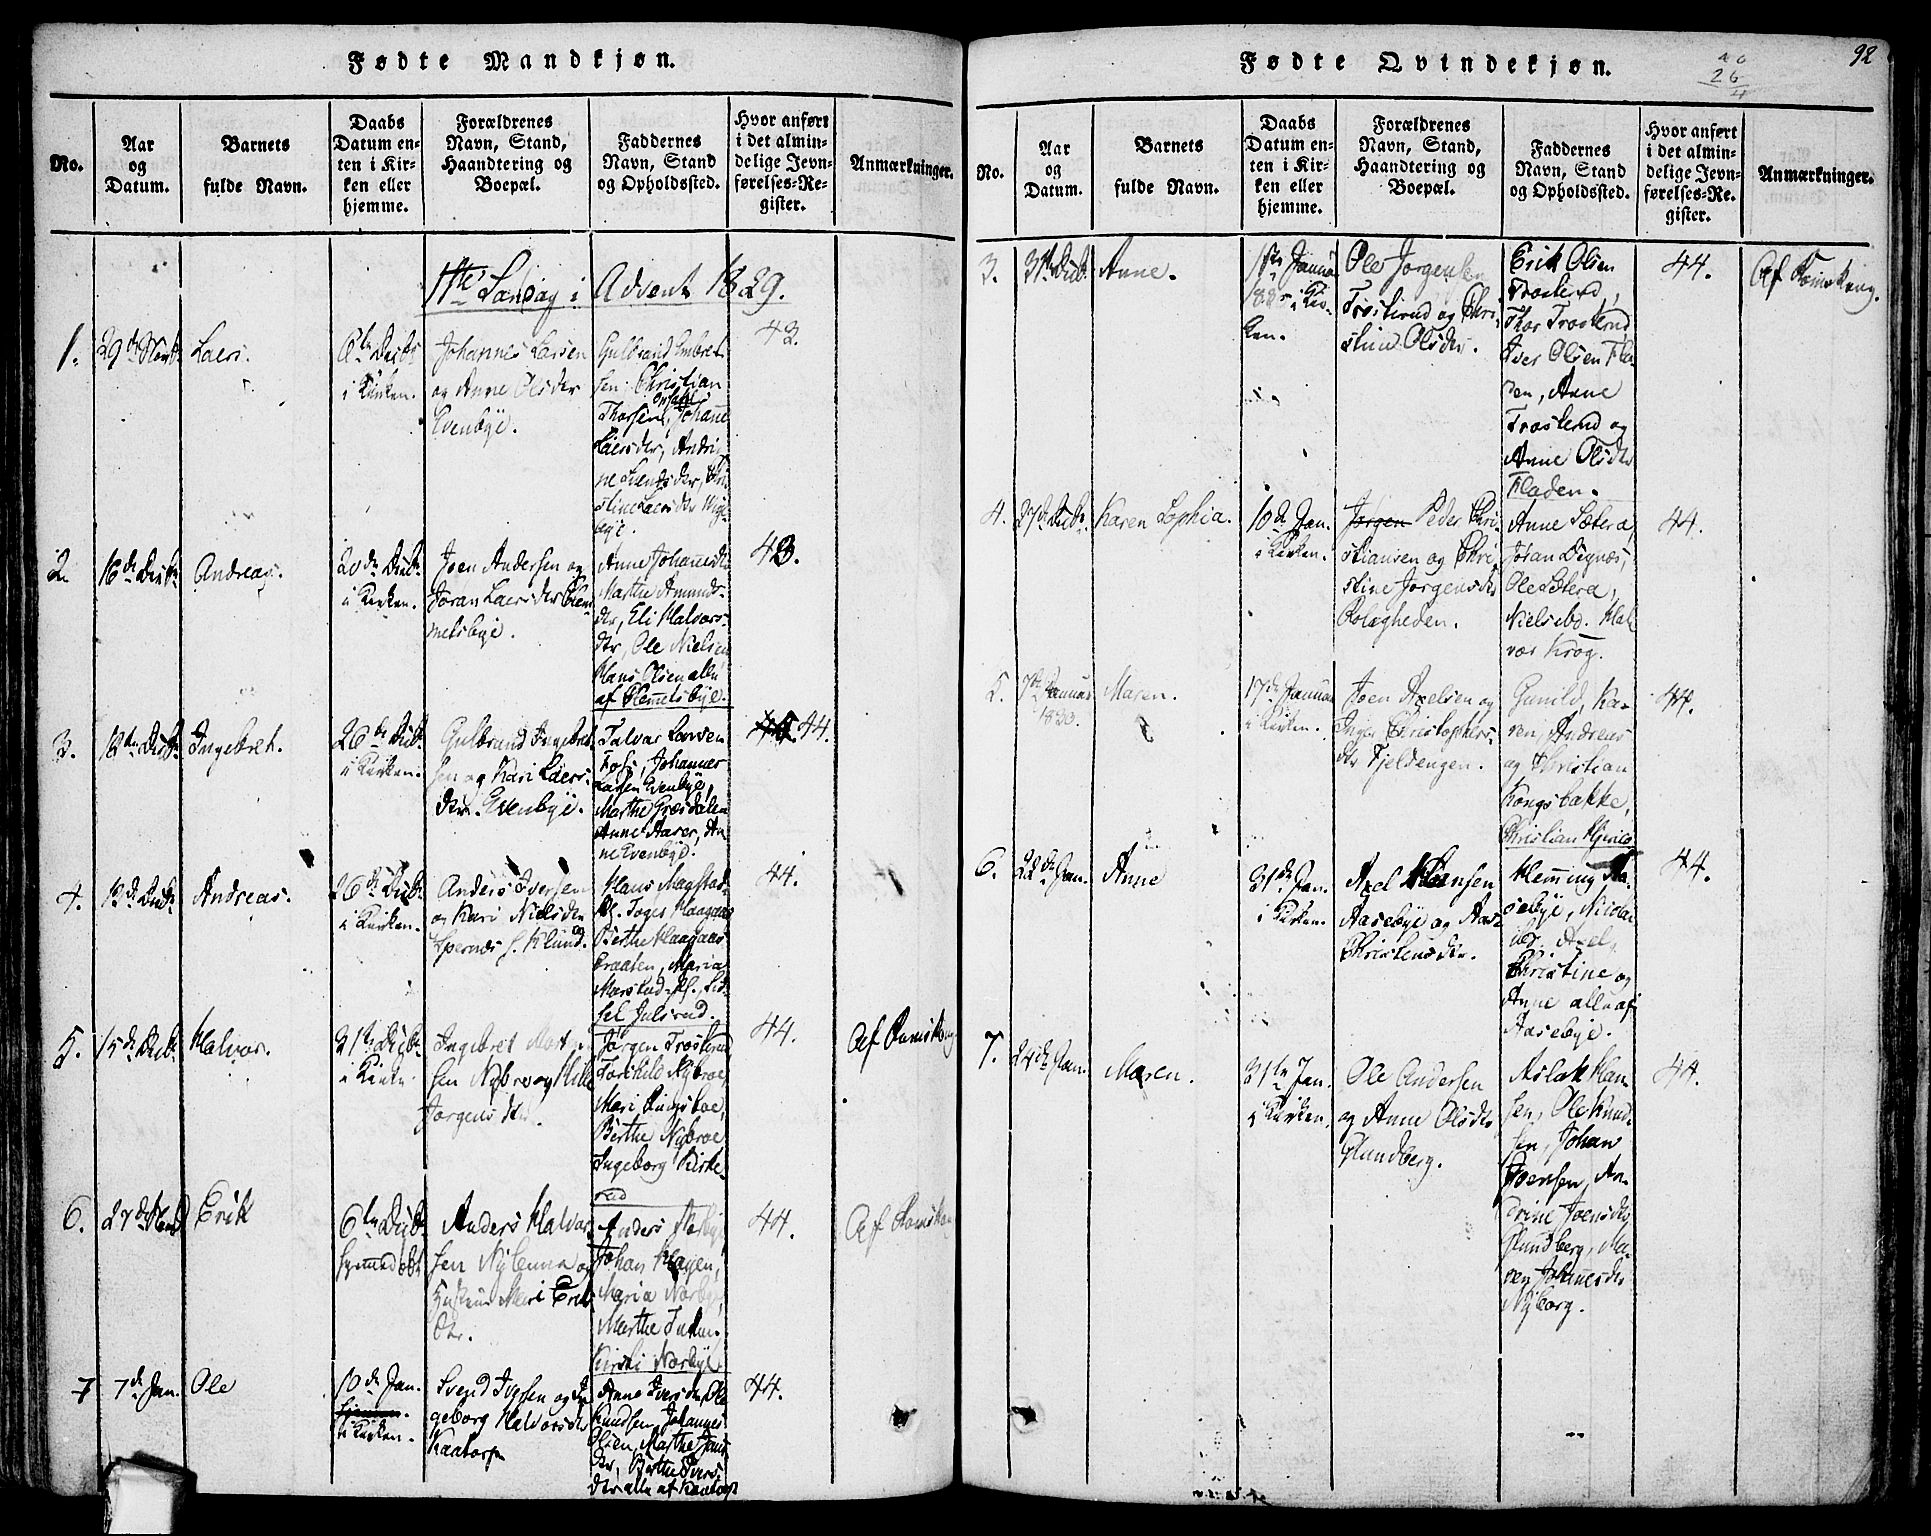 Fødte Mandkjøn.
No.
Aar
og
Datum.
Barnets
fulde Navn.
Daabs
Datum en-
ten i Kir-
ken eller
hjemme.
Forældrenes
Navn, Stand,
Haandtering og
Boepæl.
Faddernes
Navn, Stand
og Opholdssted.
Hvor anført
i det almin-
delige Jevn-
førelses-Re-
gister.
Anmærkninger.
1ste Søndag i Advent 1829.
1.
29de Novb.
Laers.
i Kirken.
Johannes Larsen
og Anne Olsdtr
Evenbye.
Gulbrand Embret-
sen, Christian
Thorsen, Johanne
Laersdtr, Andri-
ne Svendsdtr, Chri-
stine Laersdtr
43.
2.
16de Decbr.
Andreas.
20de Decbr.
i Kirken.
Joen Andersen og
Joran Laersdtr Clem-
metsbye.
Anne Johannesdtr
Marthe Amunds-
dtr, Eli Halvors-
dtr, Ole Nielsen
Hans Olsen alle
af Clemmetsbye.
43.
3.
18de Decbr.
Ingebret.
26de Decbr.
i Kirken.
Gulbrand Ingebret-
sen og Kari Laers-
dtr. Evenbye.
Talvar Larsen
Fos, Johannes
Larsen Evenbye,
Marthe Græsdalen
Anne Aaser, An-
ne Evenbye.
44.
4.
13de Decbr.
Andreas.
26de Decbr.
i Kirken.
Anders Iversen
og Kari Nielsdtr
Hans Magstad-
Berthe Haagaas-
braaten, Maria
sel Julsrud.
44.
5.
15de Decbr.
Halvor.
31te Decbr.
i Kirken
Ingebret Mort-
sen Nybroe og Kille
Jørgensdtr.
Jørgen Trosterud
Torkild Nybroe,
Mari Ringsboe,
Berthe Nybroe
Ingeborg Kirke-
rud
44.
Af Rømskog
6.
27de
Erik
6te Decbr.
hjemmedøbt
Anders Halvor-
sen Nylænna og
Hustrue Mari Eriks
Dtr.
Anders Norbye
Johan Hagen,
Maria Norbye,
Marthe
Kirsti Norbye
44.
Af Rømskog
7
7de Jan.
Ole
10de Jan.
hjemme.
i Kirken.
Svend Iversen og In-
geborg Halvorsdtr
Kaatorp
Anne Iversdtr, Ole
Knudsen, Johannes
Olsen, Marthe Jans
dtr, Berthe Ivers-
dtr alle af Kaatorp
44.
Fødte Qvindekjøn.
26
4
92
No.
Aar
og
Datum.
Barnets
fulde Navn.
Daabs
Datum en-
ten i Kir-
ken eller
hjemme.
Forældrenes
Navn, Stand,
Haandtering og
Boepæl.
Faddernes
Navn, Stand
og Opholdssted.
Hvor anført
i det almin-
delige Jevn-
førelses-Re-
gister.
Anmærkninger.
3.
31te Decbr.
Anne.
1ste Janua
i Kir-
ken.
Ole Jørgensen
Trosterud og Chri-
stine Olsdtr.
Erik Olsen
Trosterud,
Thor Trosterud
Iver Olsen Fla-
den, Anne
Trosterud og
Anne Olsdtr
Fladen.
44.
Af Rømskog.
4.
27de Decbr.
Karen Sophia.
10de Jan.
i Kirken.
Jørgen Peder Chri-
stiansen og Chri-
stine Jørgensdtr
Bolægheden.
Anne Sætera,
Johan Degnæs,
Ole Sætera,
Nielsebd. Hal
vor Krog.
44.
5.
7de Januar
1830.
Maren.
17de Januar
i Kirken.
Joen Axelsen og
Inger Christophers-
dtr Fjeldengen.
Gunild, Ka-
ren, Andreas
og Christian
Kongsbakke,
Christian
44.
6.
22de Jan.
Anne
31te Jan.
i Kirken.
Axel Hansen
Aasebye og Aase
Christensdtr.
Hemming Aa-
sebye, Nicolai
ibd. Axel,
Christine og
Anne alle af
Aasebye.
44.
7.
24de Jan.
Maren.
31te Jan.
i Kirken.
Ole Andersen
og Anne Olsdtr
Glundberg.
Aslak Han-
sen, Ole Knud-
sen, Johan
Joensen, An-
drine Joensdtr
Glundberg, Ma-
ren Johannesdtr
Nyborg.
44.